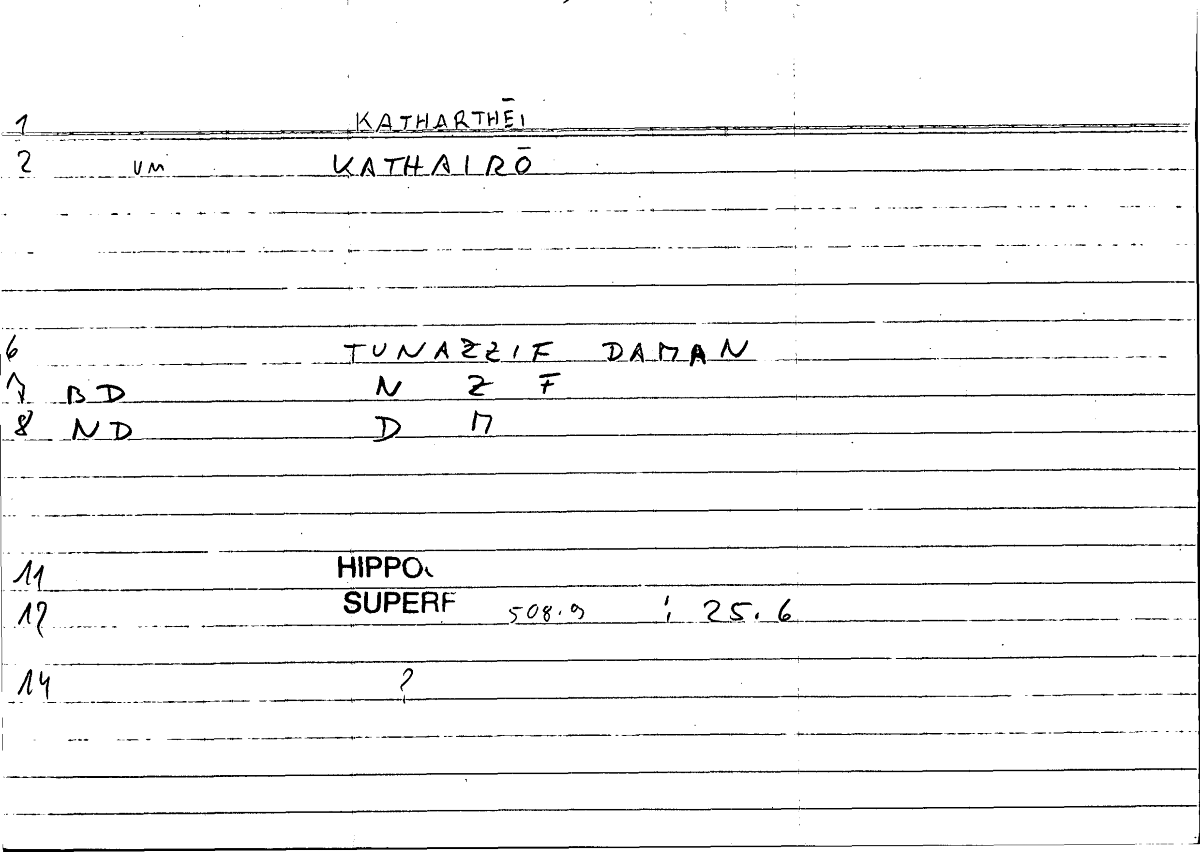 1 KATHARTHĒI
2 VM KATHAIRŌ
6 TUNAZZIF DAMAN
7 BD N Z F
8 ND D M
11 HIPPO
12 SUPERF 508.9 ; 25.6
14 ?